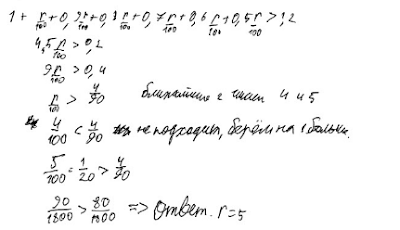 1 + r/100 + 0,9r/100 + 0,8 r/100 + 0,7 r/100 + 0,6 r/100 + 0,5 r/100 > 1,2
4,5 r/100 > 0,2
9 r/100 > 0,4
r/100 > 4/90 ближайшие 2 4 и 5
4/100 < 4/90 не подходит, берём на 1 больше.
5/100 = 1/20 > 4/90
90/1800 > 80/1800 => Ответ. r=5